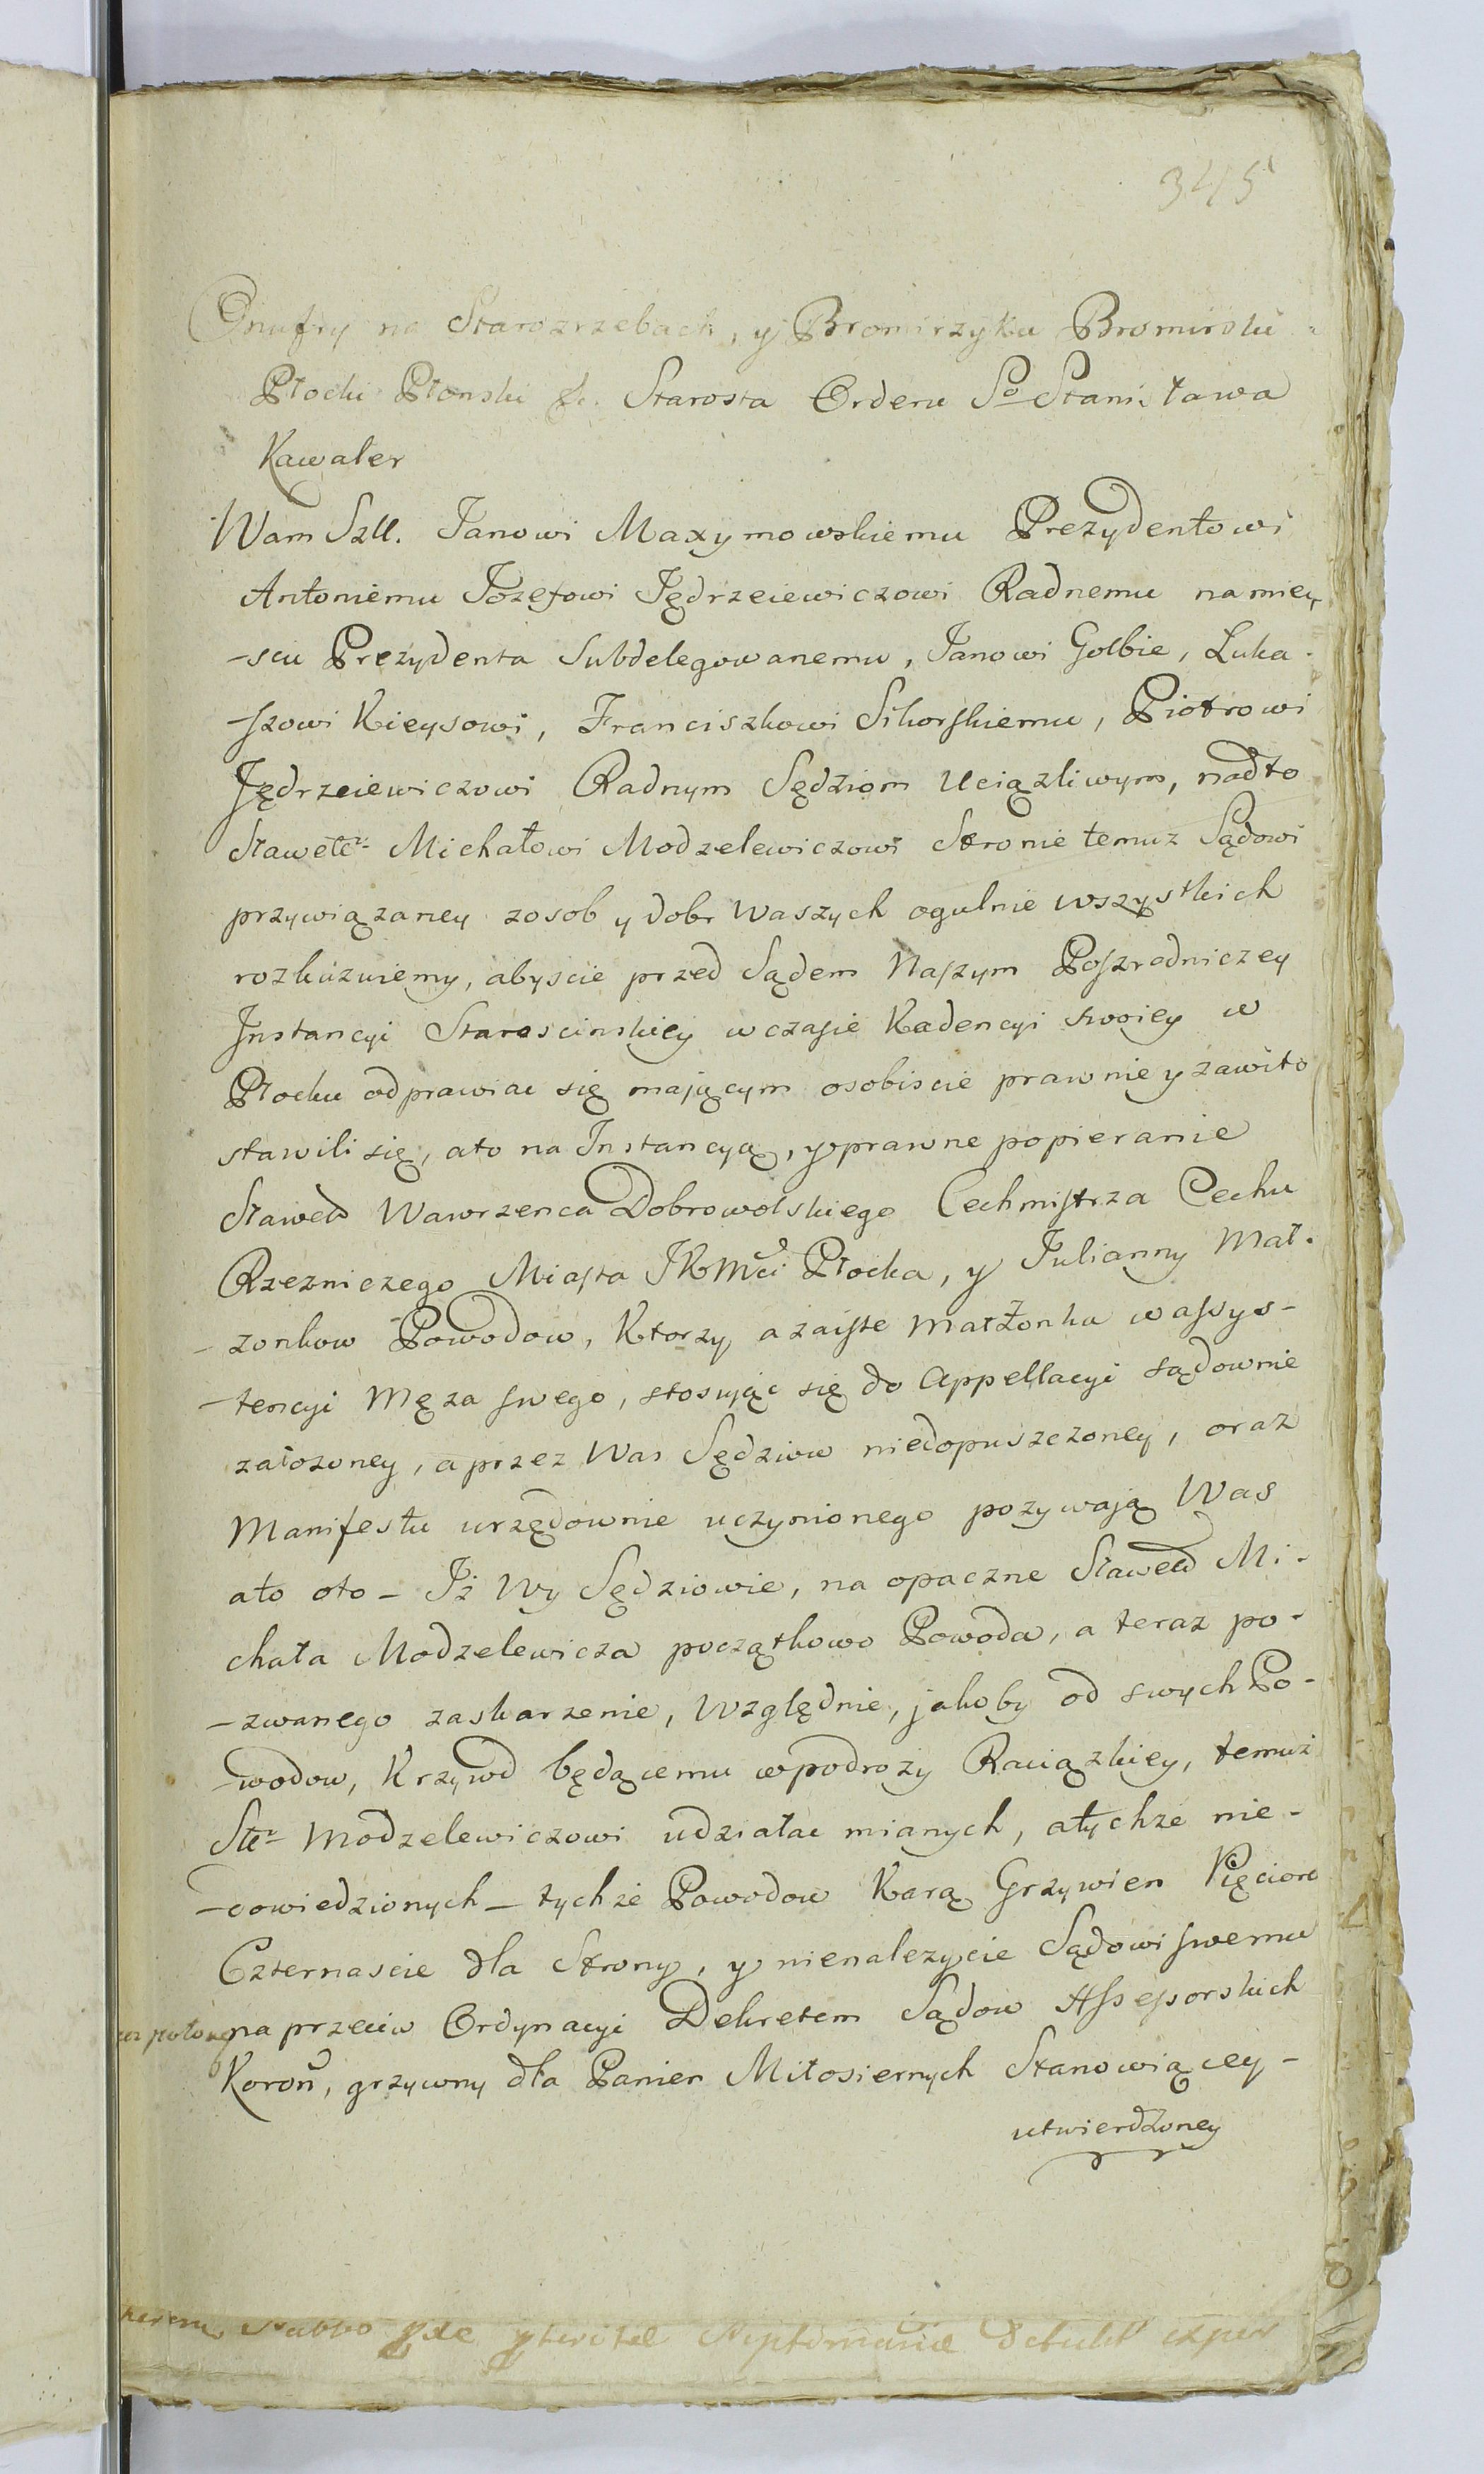 345
Onufry na Starozrzebach, y Bromirzyku Bromirski
Płocki Płonski &c. Starosta Orderu So Stanisława
Kawaler
Wam Szll. Janowi Maxymowskiemu Prezydentowi
Antoniemu Jozefowi Jędrzeiewiczowi Radnemu na miey
-scu Prezydenta Subdelegowanemu, Janowi Golbie, Luka-
-szowi Kieysowi, Franciszkowi Sikorskiemu, Piotrowi
Jędrzeiewiczowi Radnym Sędziom Uciązliwym, nadto
Sławetr Michałowi Modzelewiczowi Stronie temuz Sądowi
przywiązaney zosob y dobr Waszych ogulnie wszystkich
rozkazuiemy, abyscie przed Sądem Naszym Poszredniczey
Instancyi Staroscinskiey w czasie Kadencyi swoiey w
Płocku odprawiac się mającym osobiscie prawnie y zawito
stawili się, ato na Instancyą, y prawne popieranie
Sławetd Wawrzenca Dobrowolskiego Cechmistrza Cechu
Rzezniczego Miasta JKMci Płocka, y Julianny Mał-
-zonkow Powodow, Ktorzy, azaiste Małżonka w assys-
-tencyi Męza swego, stosując się do Appellacyi sądownie
załozoney, a przez Was Sędziow niedopuszczoney, oraz
Manifestu urzędownie uczynionego pozywają Was
ato oto - Iż Wy Sędziowie, na opaczne Sławetd Mi-
chała Modzelewicza początkowo Powoda, a teraz po-
-zwanego zaskarzenie, Względnie, jakoby od swych Po-
-wodow, Krzywd będącemu w podroży Raciązkiey, temuż
Sttr Modzelewiczowi udziałac mianych, atychże nie-
-dowiedzionych - tychże Powodow Karą Grzywien Pięcioro
Czternascie dla Strony, y nienalezycie Sądowi swemu
na przeciw Ordynacyi Dekretem Sądow Assesorskich
Koroń, grzywny dla Panien Miłosiernych Stanowiącey -
utwierdzoney